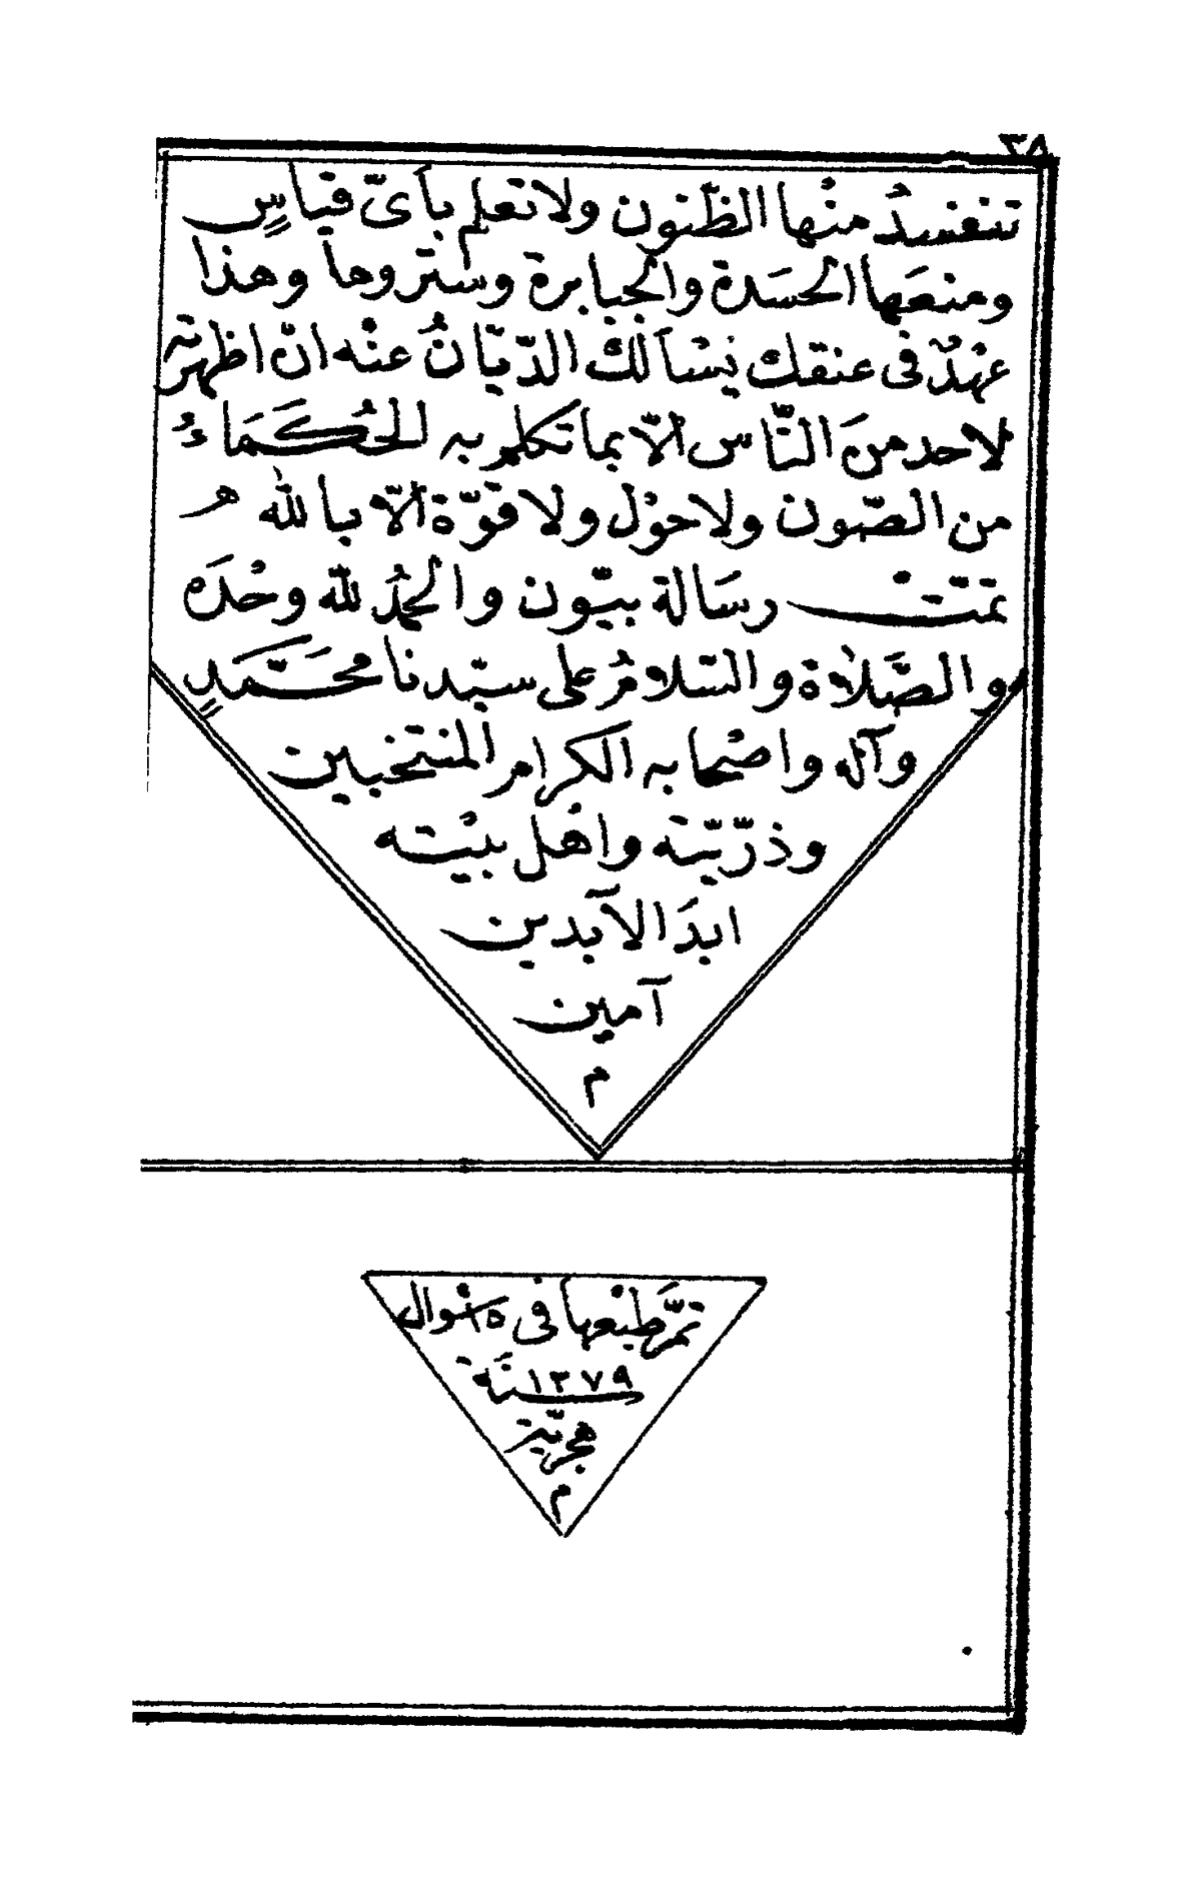 ٣٨
تنفسدُ منْها الظّنون ولا تعلم بأىّ قياسٍ
ومنعَها الحسَدة والجبابرة وستروها وهذا
عهْدٌ فى عنقك يسْألكَ الدّيّانُ عنْه انّ اظهرته
لاحد منَ النّاس الّا بما تكلم به الحُكَمَاءُ
من الصّون ولا حوْل ولا قوّة الّا بالله هـ
تمّتْ رسَالة بيّون والحمْدُ لله وحْدَه
والصَّلاة والسّلامُ على سيّدنا محَمَّدٍ
وآله واصْحابه الكرام المنتخبين
وذرّيّته واهْل بيْته
ابدَ الآبدين
آمين
م
تمَّ طبْعها فى ٥ شوال
سنَة ١٣٧٩
هجريّة
م